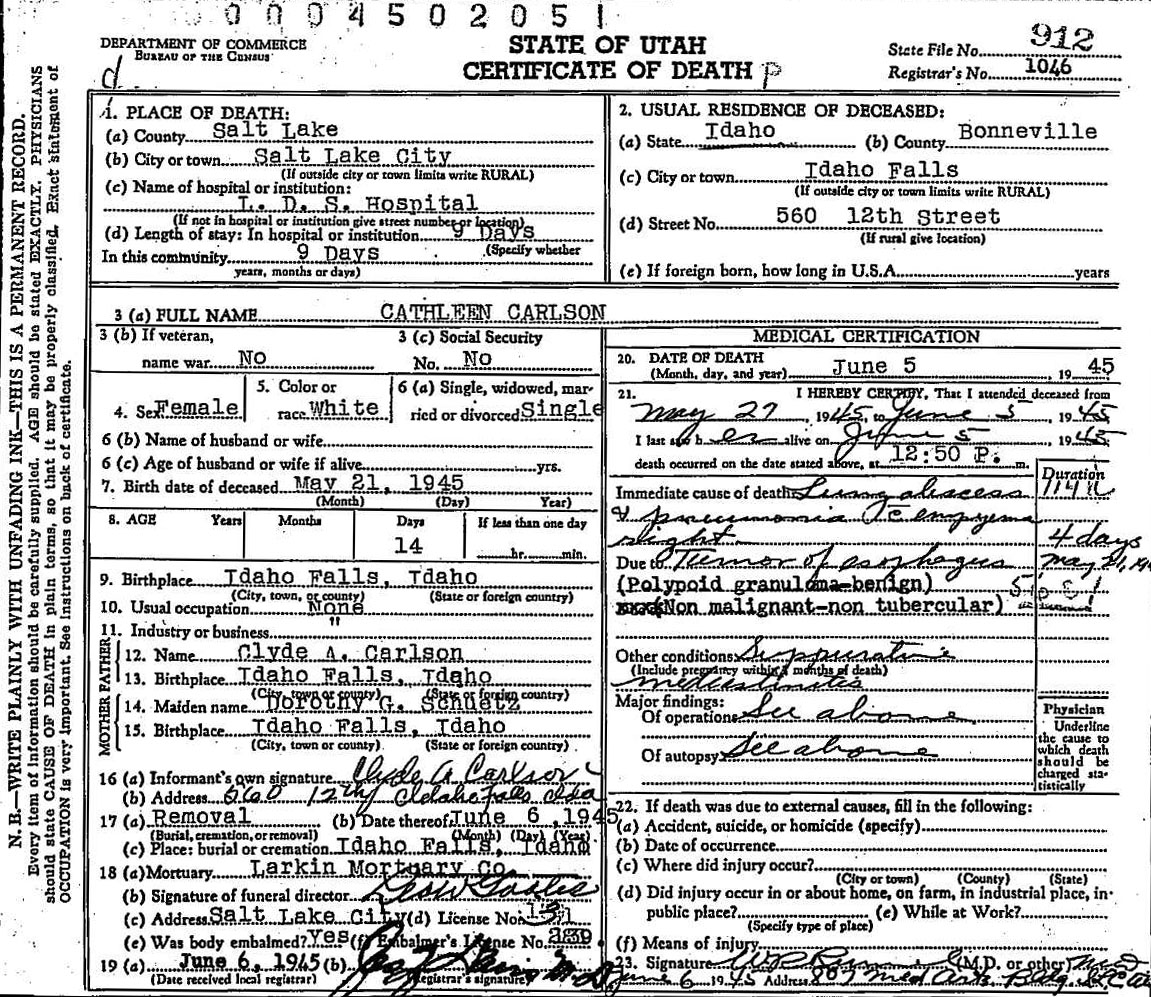 0004502051
DEPARTMENT OF COMMERCE
BUREAU OF THE CENSUS
d
STATE OF UTAH
CERTIFICATE OF DEATH P
State File No. 912
Registrar's No. 1046
N. B.—WRITE PLAINLY WITH UNFADING INK—THIS IS A PERMANENT RECORD.
Every item of information should be carefully supplied. AGE should be stated EXACTLY. PHYSICIANS
should state CAUSE OF DEATH in plain terms, so that it may be properly classified. Exact statement of
OCCUPATION is very important. See instructions on back of certificate.
1. PLACE OF DEATH:
(a) County Salt Lake
(b) City or town Salt Lake City
(If outside city or town limits write RURAL)
(c) Name of hospital or institution:
L. D. S. Hospital
(If not in hospital or institution give street number or location)
(d) Length of stay: In hospital or institution 9 Days
(Specify whether
In this community 9 Days
years, months or days)
2. USUAL RESIDENCE OF DECEASED:
(a) State Idaho (b) County Bonneville
(c) City or town Idaho Falls
(If outside city or town limits write RURAL)
(d) Street No. 560 12th Street
(If rural give location)
(e) If foreign born, how long in U.S.A. years
3 (a) FULL NAME CATHLEEN CARLSON
3 (b) If veteran,
name war No
3 (c) Social Security
No. No
4. Sex Female
5. Color or
race White
6 (a) Single, widowed, mar-
ried or divorced Single
6 (b) Name of husband or wife
6 (c) Age of husband or wife if alive yrs.
7. Birth date of deceased May 21, 1945
(Month) (Day) Year)
8. AGE Years Months Days If less than one day
14 hr. min.
9. Birthplace Idaho Falls, Idaho
(City, town, or county) (State or foreign country)
10. Usual occupation None
11. Industry or business "
FATHER
12. Name Clyde A. Carlson
13. Birthplace Idaho Falls, Idaho
(City, town or county) (State or foreign country)
MOTHER
14. Maiden name Dorothy G. Schuetz
15. Birthplace Idaho Falls, Idaho
(City, town or county) (State or foreign country)
16 (a) Informant's own signature Clyde A Carlson
(b) Address 560 12th Idaho Falls Ida
17 (a) Removal (b) Date thereof June 6, 1945
(Burial, cremation, or removal) (Month) (Day) (Year)
(c) Place: burial or cremation Idaho Falls, Idaho
18 (a) Mortuary Larkin Mortuary Co
(b) Signature of funeral director
(c) Address Salt Lake City (d) License No. 131
(e) Was body embalmed? Yes (f) Embalmer's License No. 339
19 (a) June 6, 1945 (b)
(Date received local registrar) Registrar's signature)
MEDICAL CERTIFICATION
20. DATE OF DEATH
(Month, day, and year) June 5 19 45
21. I HEREBY CERTIFY, That I attended deceased from
May 27 1945 to June 5 1945
I last saw her alive on June 5 1945
death occurred on the date stated above, at 12:50 P. m.
Duration
Immediate cause of death Lung abscess
& pneumonia c empyema
right 4 days
Due to Tumor of esophagus May 21, 194
(Polypoid granuloma-benign)
(Non malignant-non tubercular)
Other conditions Suppurative
(Include pregnancy within 3 months of death)
mediastinitis
Major findings:
Of operations See above
Of autopsy See above
Physician
Underline
the cause to
which death
should be
charged sta-
tistically
22. If death was due to external causes, fill in the following:
(a) Accident, suicide, or homicide (specify)
(b) Date of occurrence
(c) Where did injury occur?
(City or town) (County) (State)
(d) Did injury occur in or about home, on farm, in industrial place, in
public place? (e) While at Work?
(Specify type of place)
(f) Means of injury
23. Signature (M.D. or other) MD
June 6 1945 Address 807 Med Arts Bldg